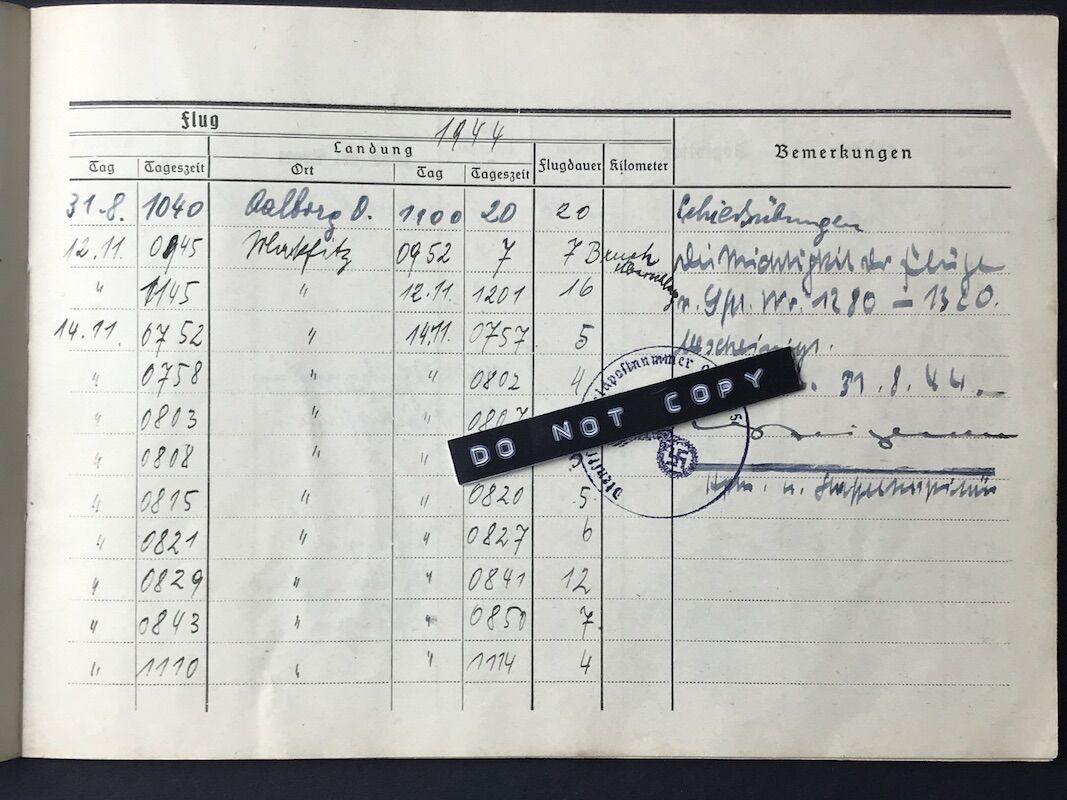 Flug
1944
Landung
Bemerkungen
Tag Tageszeit Ort Tag Tageszeit Flugdauer Kilometer
31.8. 1040 Aalborg O. 1100 20 20 Schießübungen
12.11. 0945 0952 7 7 Bruch Die Richtigkeit der Flüge
" 1145 " 12.11. 1201 16 v. Nr. 1280 – 1320.
14.11. 0752 " 14.11. 0757 5 bescheinigt.
" 0758 " " 0802 4 31.8.44.
" 0803 " " 0807
" 0808 " "
" 0815 " " 0820 5
" 0821 " " 0827 6
" 0829 " " 0841 12
" 0843 " " 0850 7
" 1110 " " 1114 4
DO NOT COPY
u. Staffelkapitän